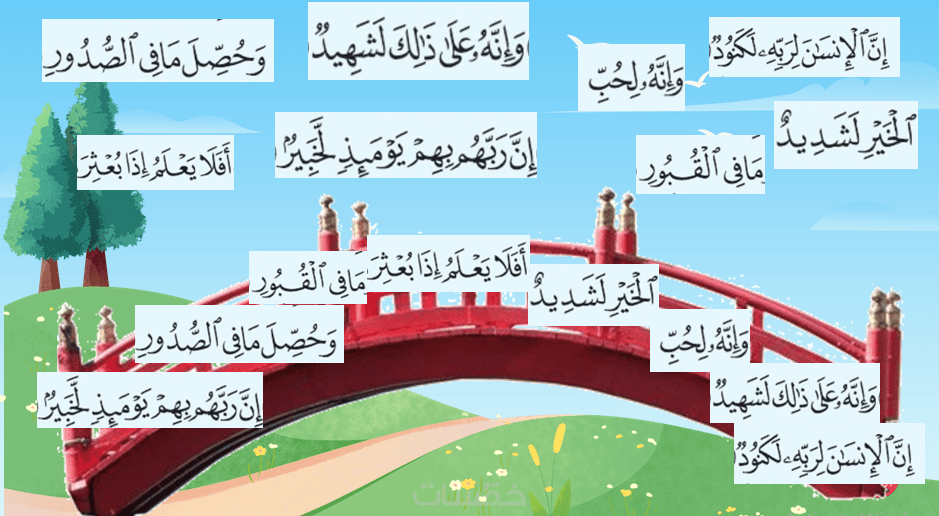 إِنَّ ٱلْإِنسَٰنَ لِرَبِّهِۦ لَكَنُودٌ
وَإِنَّهُۥ عَلَىٰ ذَٰلِكَ لَشَهِيدٌ
وَحُصِّلَ مَا فِى ٱلصُّدُورِ
وَإِنَّهُۥ لِحُبِّ
ٱلْخَيْرِ لَشَدِيدٌ
إِنَّ رَبَّهُم بِهِمْ يَوْمَئِذٍ لَّخَبِيرٌۢ
مَا فِى ٱلْقُبُورِ
أَفَلَا يَعْلَمُ إِذَا بُعْثِرَ
أَفَلَا يَعْلَمُ إِذَا بُعْثِرَ
مَا فِى ٱلْقُبُورِ
ٱلْخَيْرِ لَشَدِيدٌ
وَحُصِّلَ مَا فِى ٱلصُّدُورِ
وَإِنَّهُۥ لِحُبِّ
وَإِنَّهُۥ عَلَىٰ ذَٰلِكَ لَشَهِيدٌ
إِنَّ رَبَّهُم بِهِمْ يَوْمَئِذٍ لَّخَبِيرٌۢ
إِنَّ ٱلْإِنسَٰنَ لِرَبِّهِۦ لَكَنُودٌ